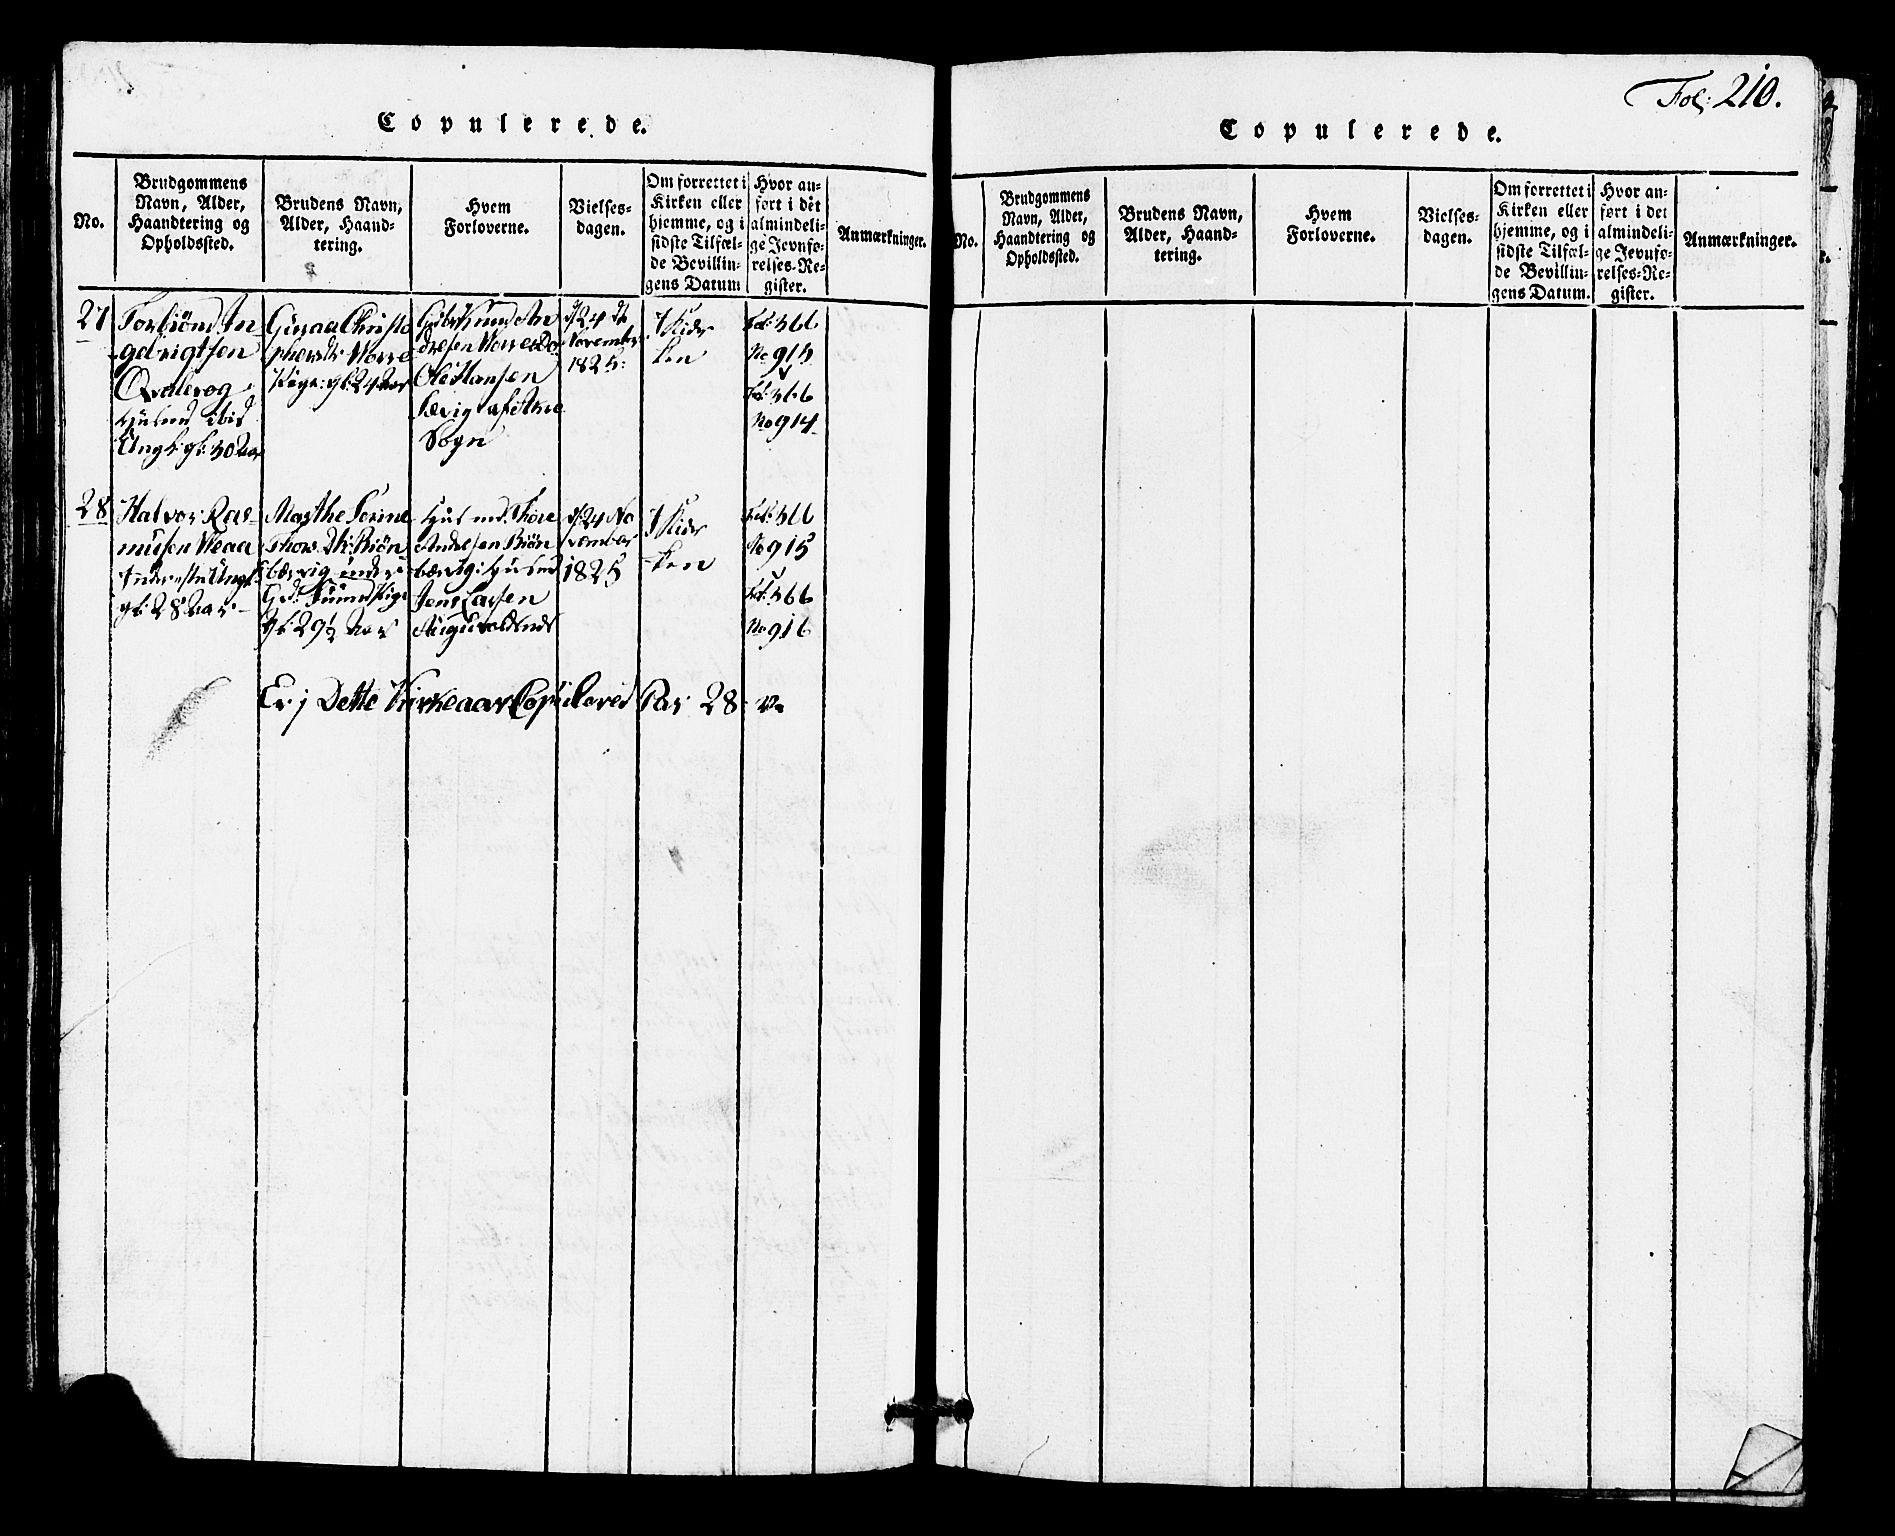 Copulerede.
No.
Brudgommens
Navn, Alder,
Haandtering og
Opholdssted.
Brudens Navn,
Alder, Haand-
tering.
Hvem
Forloverne.
Vielses-
dagen.
Om forrettet i
Kirken eller
hjemme, og i
sidste Tilfæl-
de Bevillin-
gens Datum
Hvor an-
ført i det
almindeli-
ge Jevnfø-
relses-Re-
gister.
Anmærkninger.
27
Torbiörn In
gebrigtsen
Qvalevog
Huusmd ibid
Ungk: gl: 30 Aar
Christo
phersdr Norre
Pige: gl: 24 Aar
Knud An
dresen Norre
Ole Hansen
af
Sogn
d. 24 de
November
1825:
I Kir
ken
Fol: 366
No 913
Fol: 366
No 914
28
Halvor Ras-
musen Weaa
Ungk:
gl: 28 Aar.
Marthe Serine
Thors Dtr: Biön
bærvig
Pige
gl: 29½ Aar
Huusmd: Thore
Andersen Biön
bærvig: Huusmd
Jens Larsen
Augvaldsnes
d. 24 No
vember
1825
I Kir
ken
Fol: 366
No 915
Fol: 366
No 916
Er i Dette Kirkeaar Copulered Par 28
Fol: 210.
Copulerede.
No.
Brudgommens
Navn, Alder,
Haandtering og
Opholdssted.
Brudens Navn,
Alder, Haand-
tering.
Hvem
Forloverne.
Vielses-
dagen.
Om forrettet i
Kirken eller
hjemme, og i
sidste Tilfæl-
de Bevillin-
gens Datum.
Hvor an-
ført i det
almindeli-
ge Jevnfø-
relses-Re-
gister.
Anmærkninger.